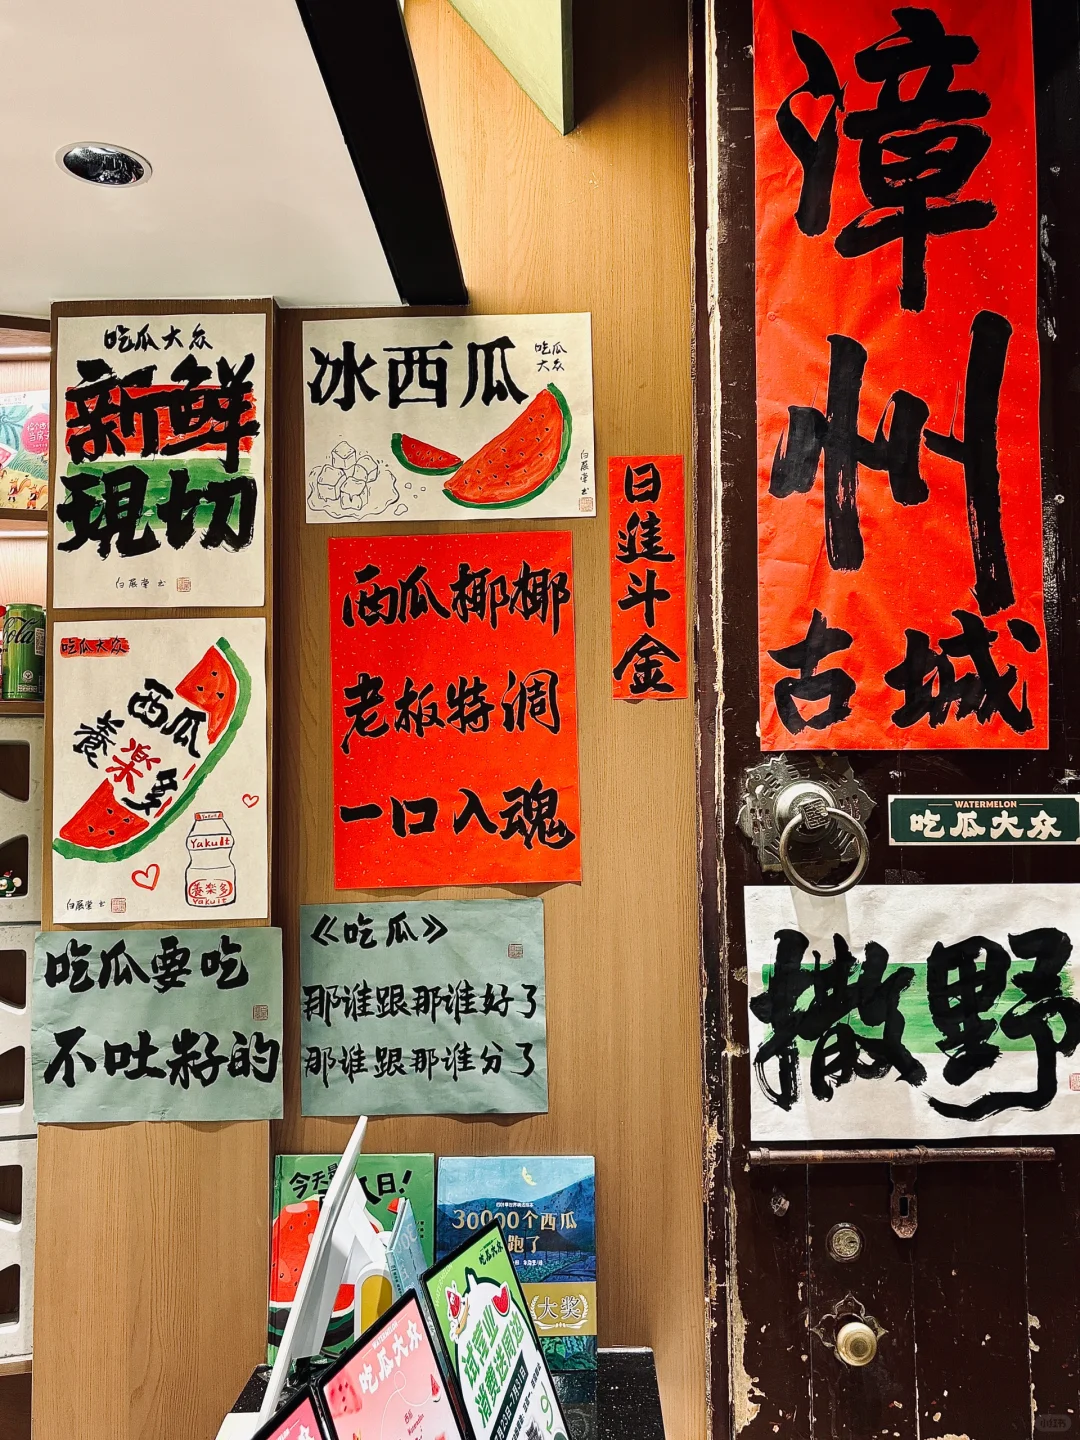 吃瓜大众
新鲜
現切
白展堂书
冰西瓜
吃瓜
大众
白展堂书
日進斗金
漳州古城
吃瓜大众
西瓜
養樂多
Yakult
Yakult
養楽多
Yakult
白展堂书
西瓜椰椰
老板特调
一口入魂
WATERMELON
吃瓜大众
撒野
吃瓜要吃
不吐籽的
《吃瓜》
那谁跟那谁好了
那谁跟那谁分了
今天是
日!
30000个西瓜
跑了
大奖
吃瓜大众
试营业
吃瓜大众
Cola